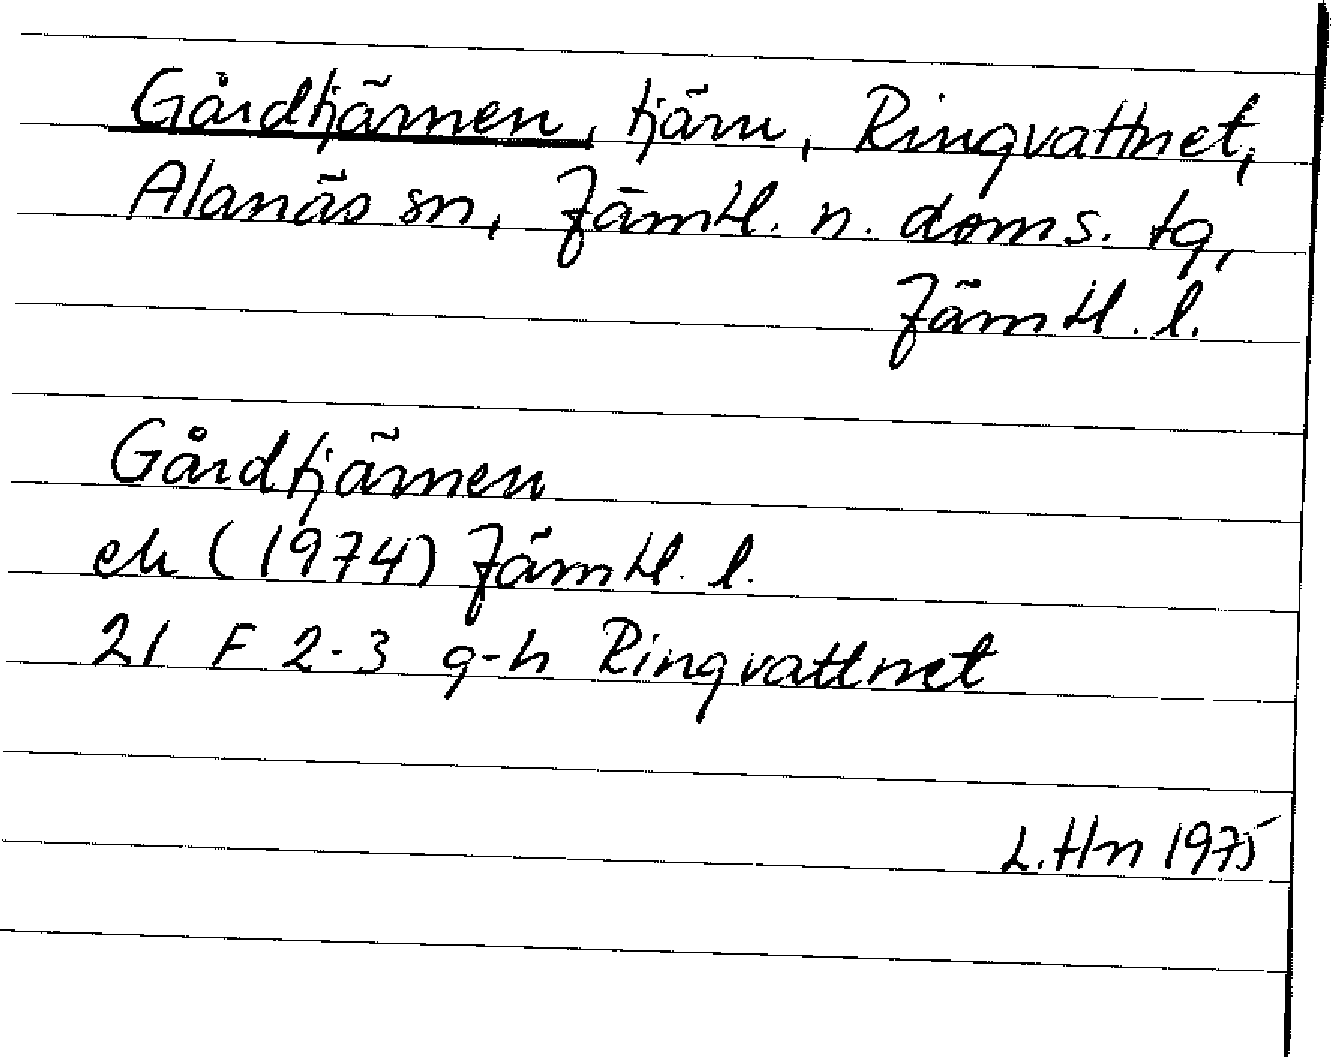 Gårdtjärnen, tjärn, Ringvattnet,
Alanäs sn, Jämtl. n. doms. tg,
Jämtl. l.
Gårdtjärnen
ek (1974) Jämtl. l.
21 F 2-3 g-h Ringvattnet
L. Hn 1975